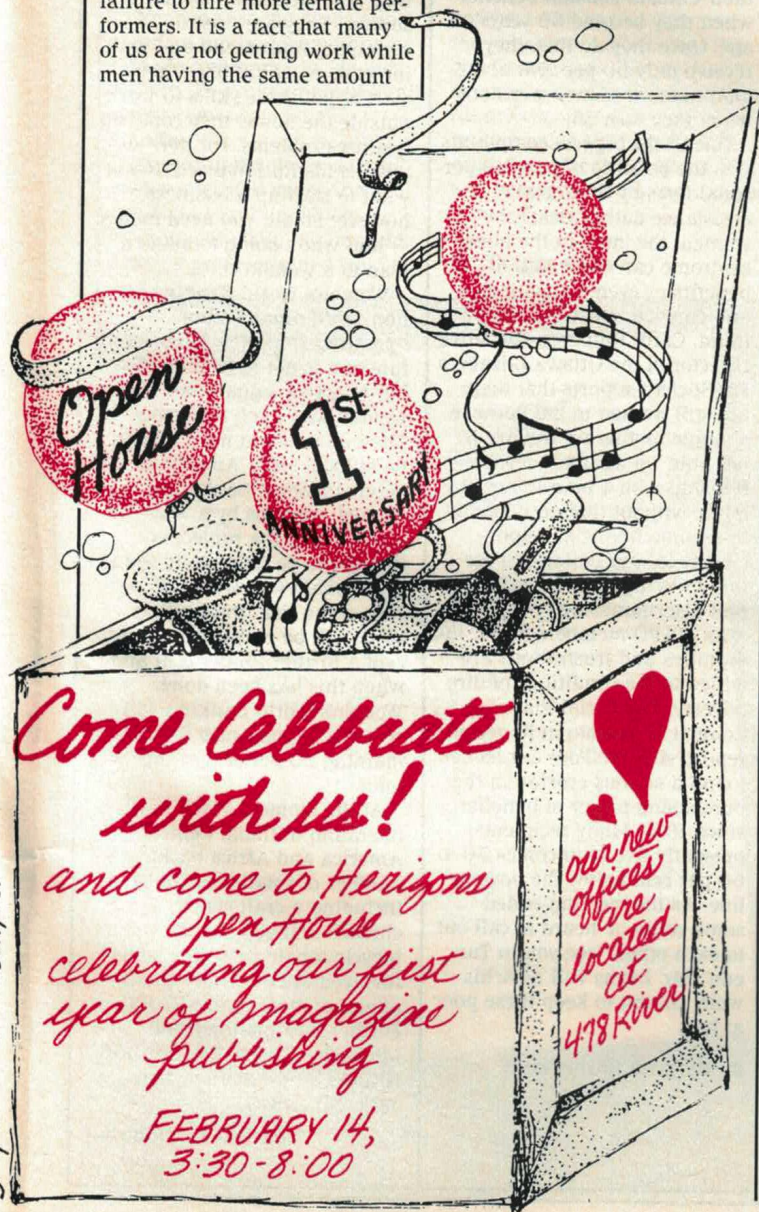 failure to hire more female per-
formers. It is a fact that many
of us are not getting work while
men having the same amount
Open
House
1st
ANNIVERSARY
Come Celebrate
with us!
and come to Herizons
Open House
celebrating our first
year of magazine
publishing
FEBRUARY 14,
3:30-8:00
our new
offices
are
located
at
478 River